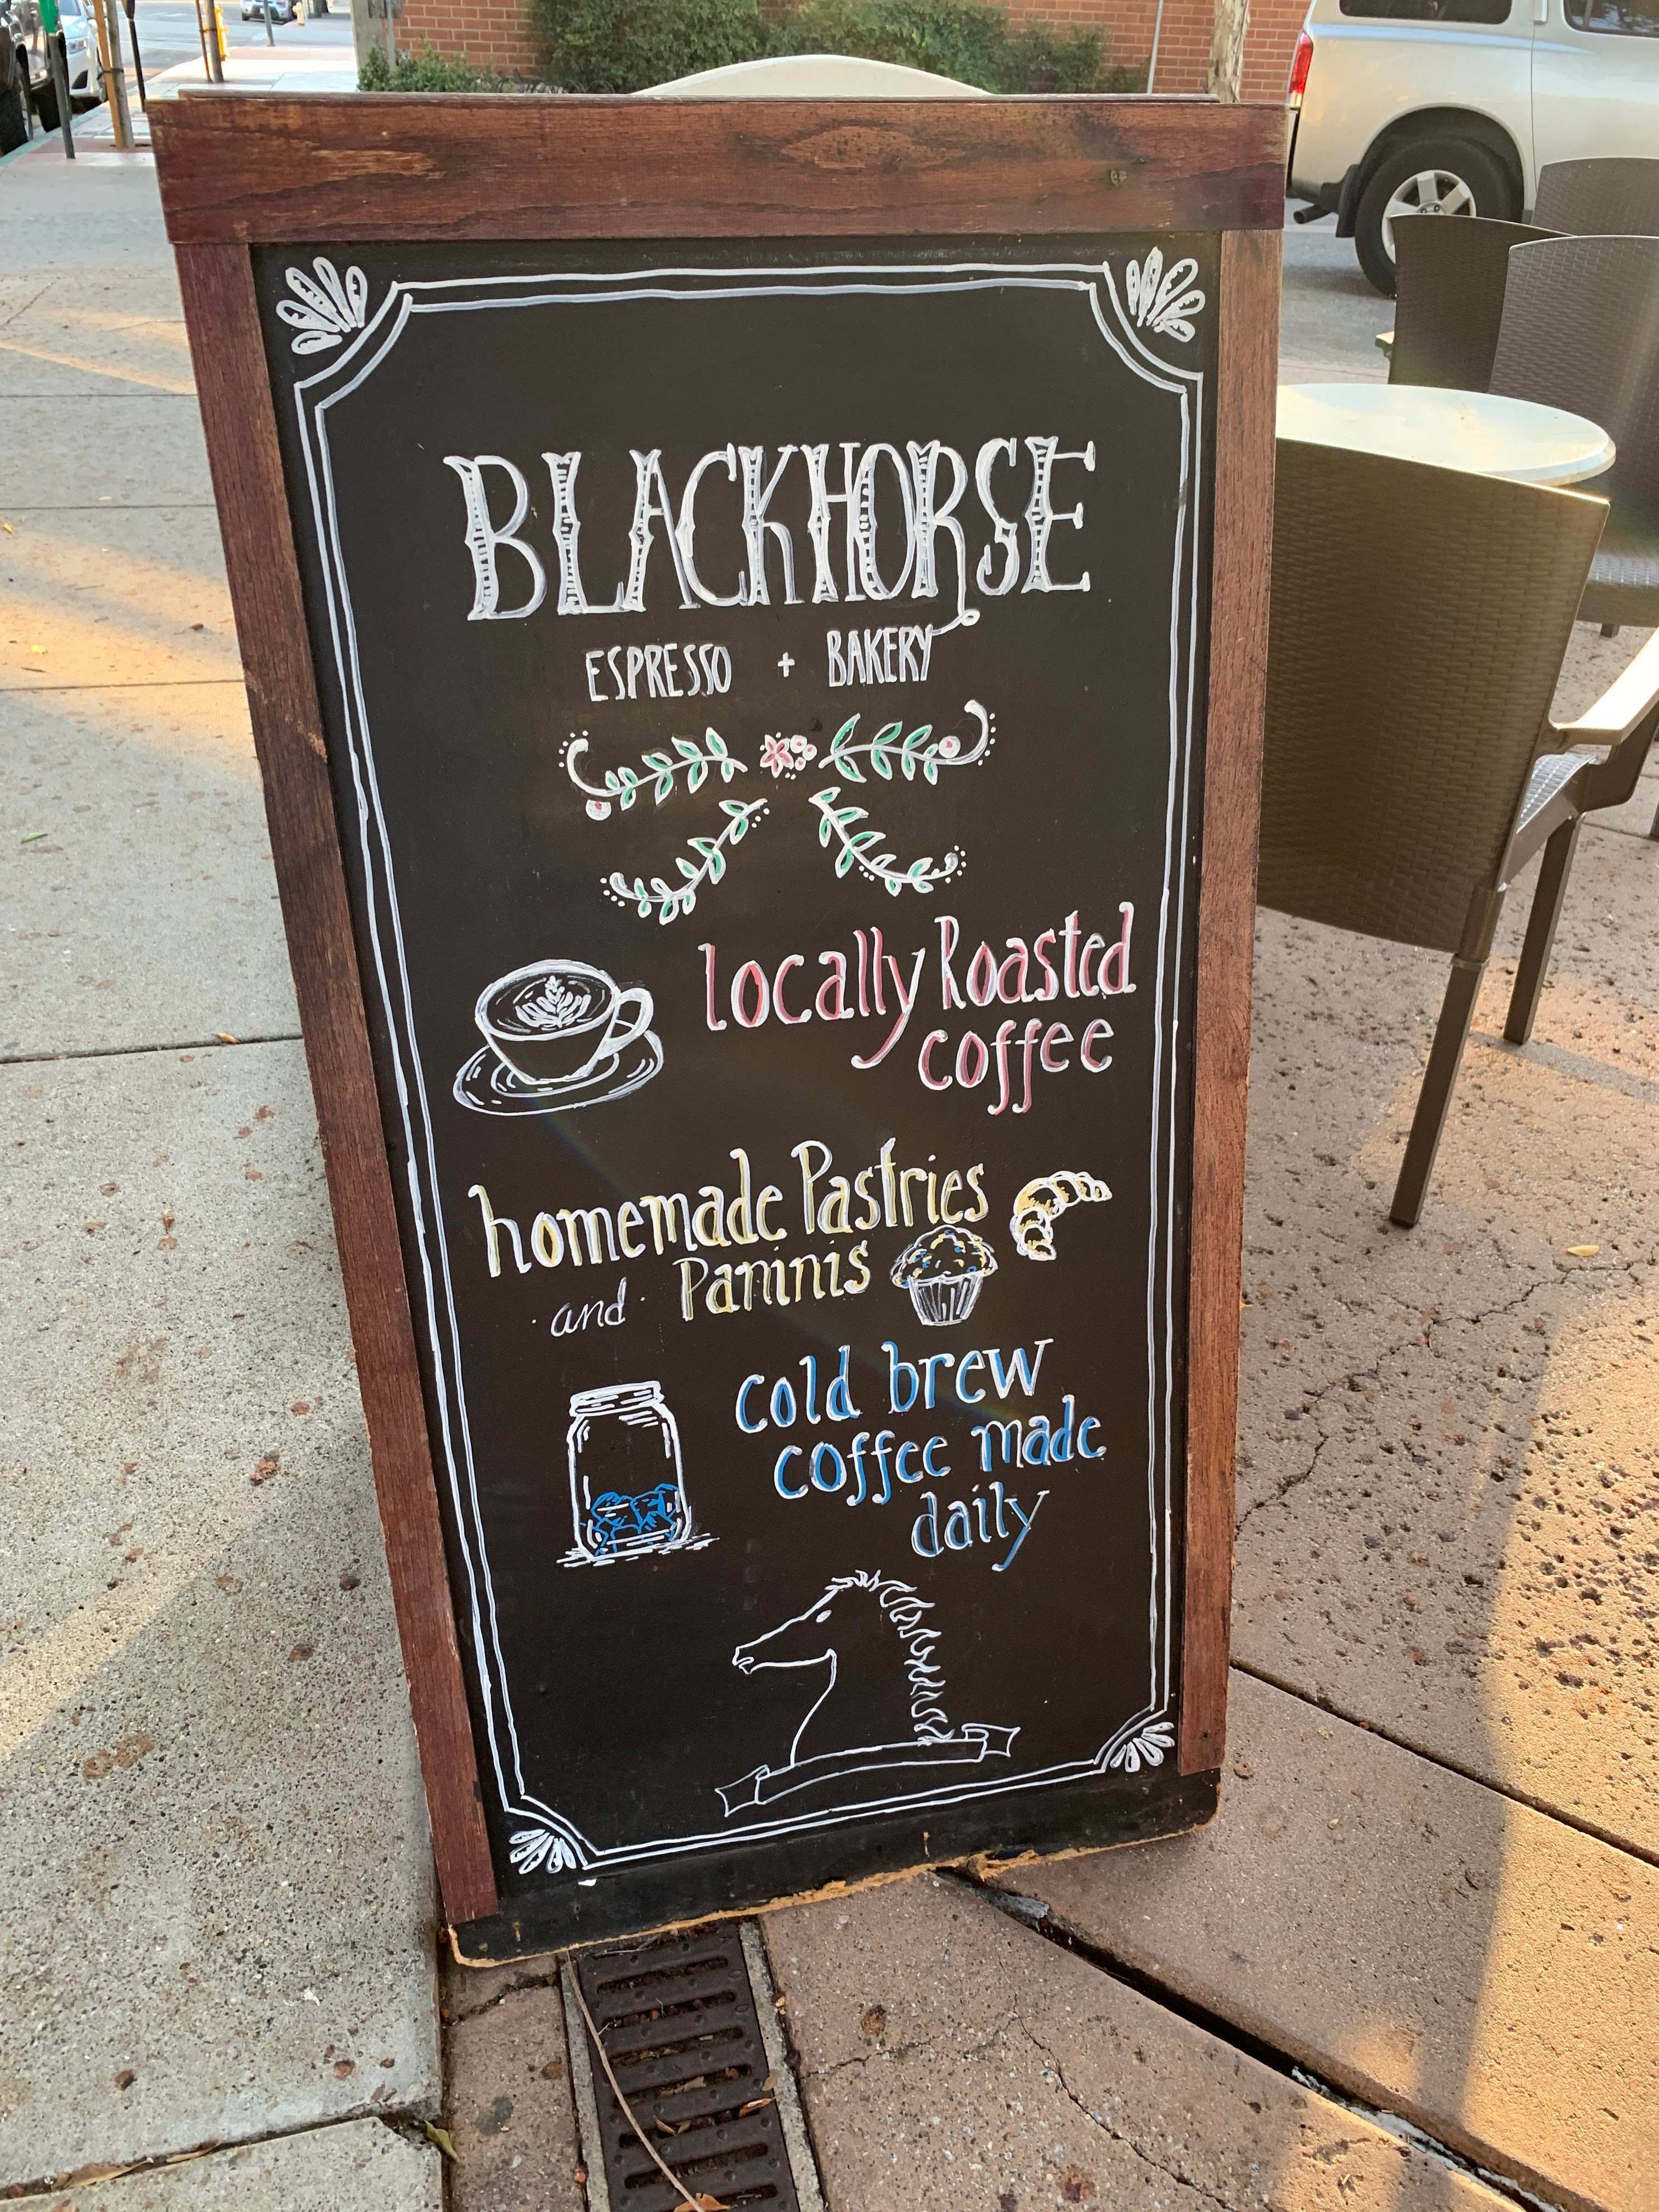 BLACKHORSE
ESPRESSO + BAKERY
locally Roasted
coffee
homemade Pastries
and Paninis
cold brew
coffee made
daily